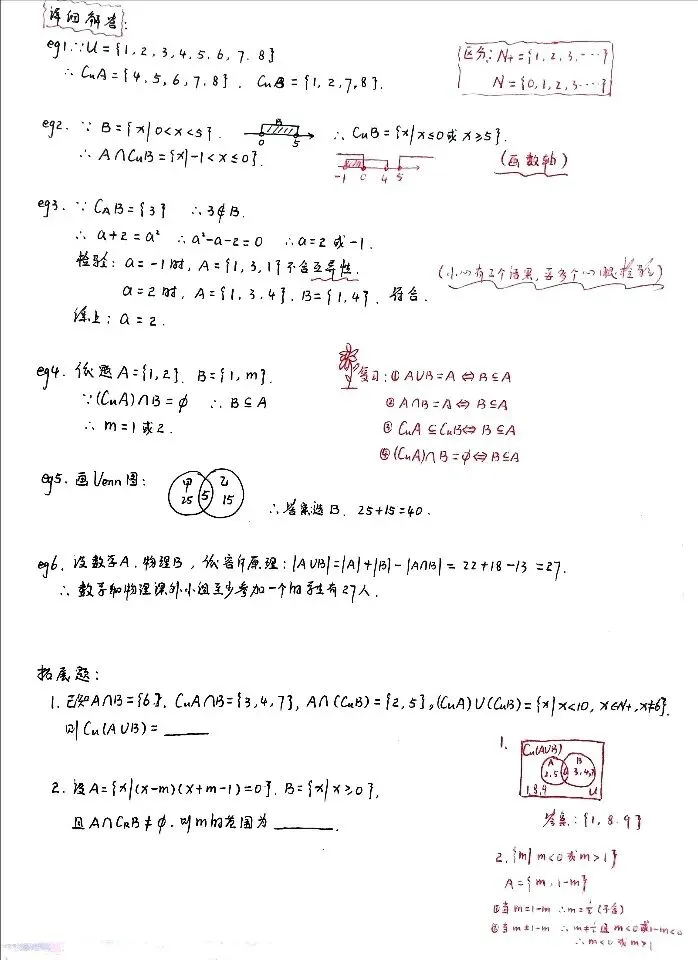 详细解答:
eg1.∵U={1,2,3,4,5,6,7,8}
∴CuA={4,5,6,7,8}. CuB={1,2,7,8}.
区分: N+={1,2,3,…}
N={0,1,2,3…}
eg2. ∵ B={x|0<x<5}. B 0 5 ∴CuB={x|x≤0或x≥5}.
∴ A∩CuB={x|-1<x≤0}. -1 0 4 5 (画数轴)
eg3. ∵CAB={3} ∴3∉B.
∴ a+2=a² ∴a²-a-2=0 ∴a=2 或-1.
检验: a=-1时, A={1,3,1}不合互异性.
a=2时, A={1,3,4}. B={1,4}. 符合.
(小心有多个结果,要检验)
综上: a=2.
eg4. 依题A={1,2}. B={1,m}.
∵(CuA)∩B=∅ ∴B⊆A
∴ m=1或2.
复习:① A∪B=A⇔B⊆A
② A∩B=A⇔B⊆A
③ CuA⊆CuB⇔B⊆A
④(CuA)∩B=∅⇔B⊆A
eg5. 画Venn图: 甲 25 5 乙 15
∴答案选B. 25+15=40.
eg6. 设数学A.物理B, 依容斥原理: |A∪B|=|A|+|B|-|A∩B|=22+18-13=27.
∴ 数学和物理课外小组至少参加一个的学生有27人.
拓展题:
1. 已知A∩B={6}. CuA∩B={3,4,7}, A∩(CuB)={2,5},(CuA)∪(CuB)={x|x<10, x∈N+,x≠6}.
则Cu(A∪B)=______
2. 设A={x|(x-m)(x+m-1)=0}. B={x|x≥0},
且A∩CRB≠∅. 则m的范围为______.
1. Cu(A∪B)
A 2,5 6 B 3,4,7
1,8,9 U
答案:{1,8,9}
2.{m|m<0或m>1}
A={m,1-m}
①当m=1-m ∴m=½(不合)
②当m≠1-m ∴m≠½且m<0或1-m<0
∴m<0或m>1